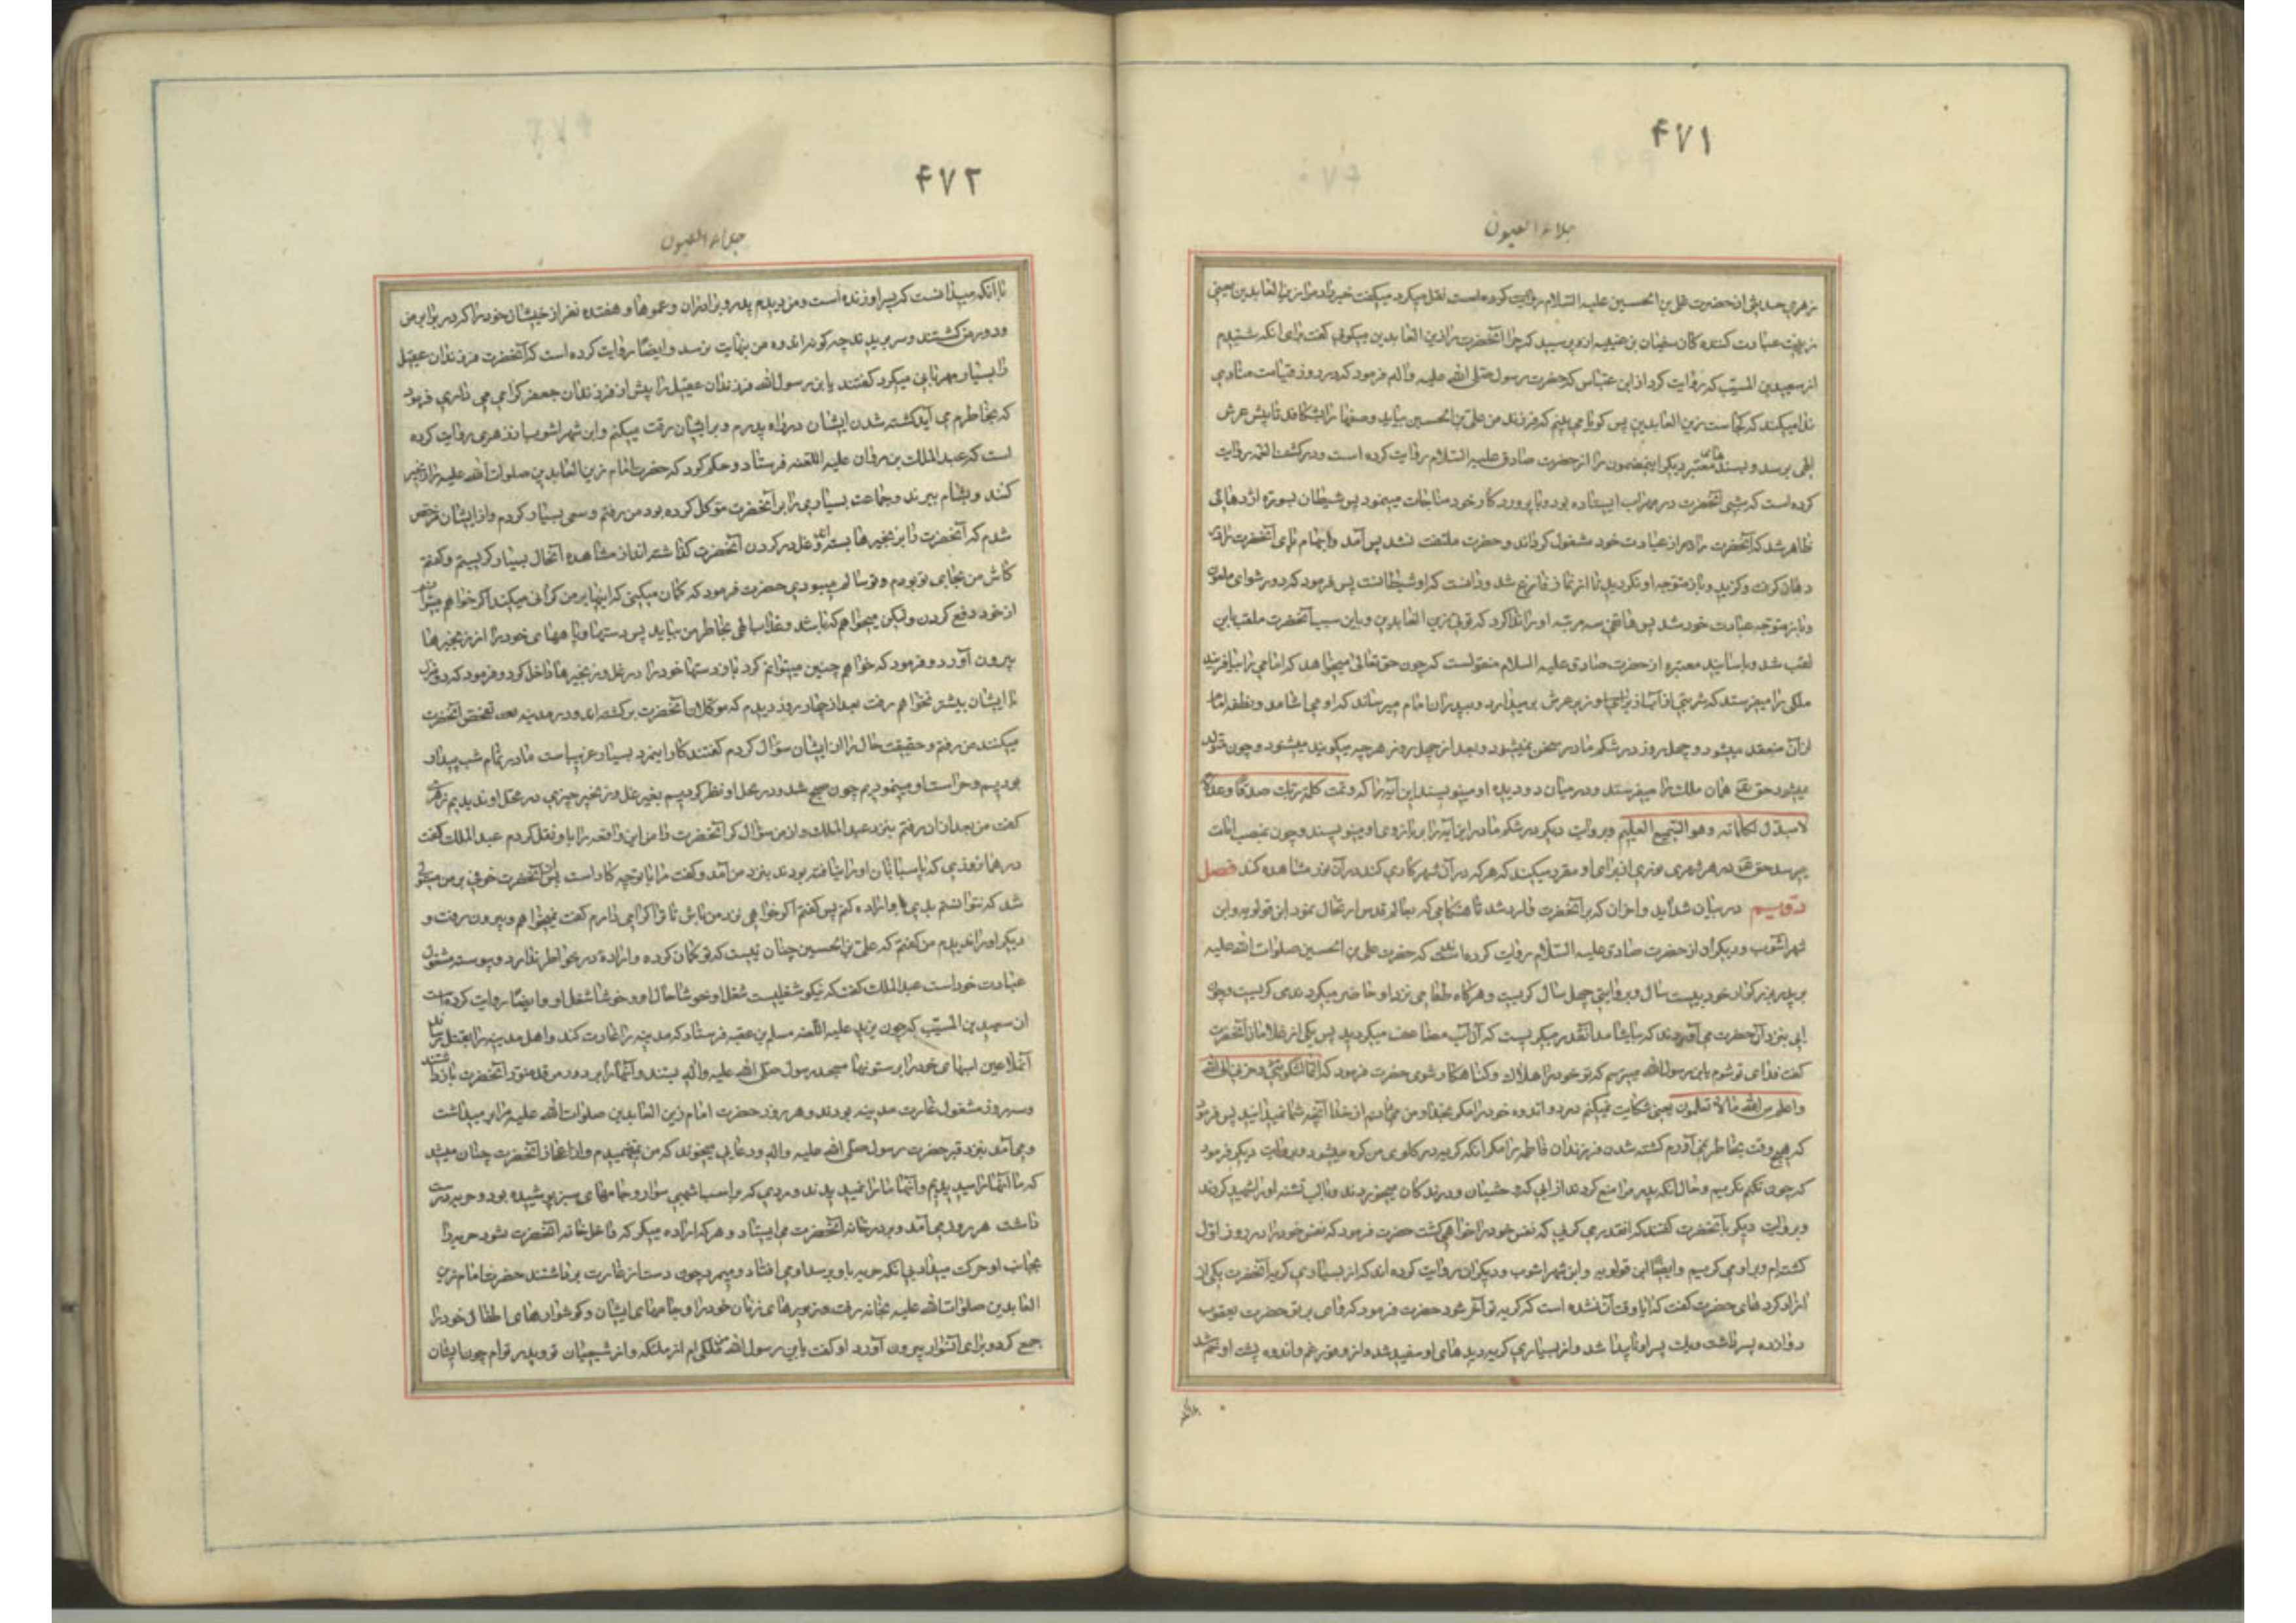 ۴۷۱
جلاء العیون
زهری حدیثی از حضرت علی بن الحسین علیه السلام روایت کرده است نقل میکرد میگفت خبر داد مرا زین العابدین یعنی
زینت عبادت کننده کان سفیان بن عیینه از و پرسید که چرا آنحضرت را زین العابدین میکوئی گفت برای انکه شنیدم
از سعید بن المسیب که روایت کرد از ابن عباس که حضرت رسول صلی الله علیه واله فرمود که در روز قیامت منادی
ندا میکند که کجاست زین العابدین پس کویا می بینم که فرزند من علی بن الحسین بیاید وصفها را بشکافد تا پیش عرش
الهی برسد و بسندهای معتبر دیکر اینمضمون را از حضرت صادق علیه السلام روایت کرده است ودر کشف الغمه روایت
کرده است که شبی آنحضرت در محراب ایستاده بود وبا پروردکار خود مناجات مینمود پس شیطان بصورة اژدهائی
ظاهر شد که آنحضرت را از عبادت خود مشغول کرداند و حضرت ملتفت نشد پس آمد وابهام پای آنحضرت را در
دهان کرفت وکزید وباز متوجه او نکردید تا از نماز فارغ شد ودانست که او شیطانست پس فرمود که دور شو ای ملعون
وباز متوجه عبادت خود شد پس هاتفی سه مرتبه او را ندا کرد که توئی زین العابدین وباین سبب آنحضرت ملقب باین
لقب شد وباسانید معتبره از حضرت صادق علیه السلام منقولست که چون حق تعالی میخواهد که امامی را بیافریند
ملکی را میفرستد که شربتی از آب از زیر عرش بر میدارد وبپدر ان امام میرساند که او می اشامد ونطفه امام
از آن منعقد میشود و چهل روز در شکم مادر سخن نمیشنود وبعد از چهل روز هرچه میکویند میشنود و چون متولد
میشود حق تعالی همان ملک را میفرستد ودر میان دو دیده او مینویسد این آیه را که وتمت کلمة ربک صدقا وعدلا
لا مبدل لکلماته وهو السمیع العلیم وبروایت دیکر در شکم مادر این آیه را بر بازوی او مینویسد وچون بمنصب امامت
میرسد حق تعالی در هر شهری نوری از برای او مقرر میکند که هرکه در آن شهر کاری کند در آن نور مشاهده کند فصل
دویم در بیان شداید واحزان که بر آنحضرت وارد شد تا هنکامی که بعالم قدس ارتحال نمود ابن قولویه وابن
شهر آشوب ودیکران از حضرت صادق علیه السلام روایت کرده اند که حضرت علی بن الحسین صلوات الله علیه
بر پدر بزرکوار خود بیست سال وبروایتی چهل سال کریست وهرکاه طعامی نزد او حاضر میکردند می کریست وچون
ابی بنزد آن حضرت می آوردند که بیاشامد آنقدر میکریست که آن آب مضاعف میکردید پس یکی از غلامان آنحضرت
گفت فدای تو شوم یابن رسول الله میترسم که تو خود را هلاک کنی حضرت فرمود که انما اشکو بثی وحزنی الی الله
واعلم من الله ما لا تعلمون یعنی شکایت نمیکنم درد واندوه خود را مکر بخدا ومن میدانم از خدا آنچه شما نمیدانید پس فرمود
که هیچ وقت بخاطر نمی آورم کشته شدن فرزندان فاطمه را مکر انکه کریه در کلوی من کره میشود وبروایت دیکر فرمود
که چون نکریم وحال انکه پدر مرا منع کردند از ابی که وحشیان ودرندکان میخوردند وبالب تشنه او را شهید کردند
وبروایت دیکر بآنحضرت گفتند که انقدر می کریی که نفس خود را خواهی کشت حضرت فرمود که نفس خود را در روز اول
کشته ام وبر او می کریم وایضا ابن قولویه وابن شهر اشوب ودیکران روایت کرده اند که از بسیاری کریه آنحضرت یکی از
ازاد کرد های حضرت گفت که ایا وقت آن نشده است که کریه تو آخر شود حضرت فرمود که وای بر تو حضرت یعقوب
دوازده پسر داشت ویک پسر او ناپیدا شد واز بسیاری کریه دید های او سفید شد واز وفور غم واندوه پشت او خم شد
۴۷۲
جلاء العیون
با انکه میدانست که پسر او زنده است ومن دیدم پدر وبرادران وعموها وهفتده نفر از خویشان خود را که در برابر من
ودور من کشتند وسر بریدند چه کونه اندوه من بنهایت برسد وایضا روایت کرده است که آنحضرت فرزندان عقیل
را بسیار مهربانی میکرد گفتند یابن رسول الله فرزندان عقیل را پیش از فرزندان جعفر کرامی می داری فرمود
که بخاطرم می آید کشته شدن ایشان در راه پدرم وبر ایشان رقت میکنم وابن شهر اشوب از زهری روایت کرده
است که عبد الملک بن مروان علیه اللعنه فرستاد وحکم کرد که حضرت امام زین العابدین صلوات الله علیه را زنجیر
کنند وبشام ببرند وجماعت بسیاری را بر آنحضرت موکل کرده بود من رفتم وسعی بسیار کردم واز ایشان مرخص
شدم که آنحضرت را بزنجیرها بسته اند وغل در کردن آنحضرت کذاشته اند از مشاهده آنحال بسیار کریستم وگفتم
کاش من بجای تو بودم وتو سالم میبودی حضرت فرمود که کمان میکنی که اینها بر من کرانی میکند اکر خواهم میتوانم
از خود دفع کردن ولیکن میخواهم که باشد وعذاب الهی بخاطر من بیاید پس دستها وپاهای خود را از زنجیرها
بیرون آورد وفرمود که خواهم چنین میتوانم کرد باز دستها خود را در غل وزنجیرها داخل کرد وفرمود که دو منزل
با ایشان بیشتر نخواهم رفت بعد از چهار روز دیدم که موکلان آنحضرت برکشته اند ودر مدینه تفحص آنحضرت
میکنند من رفتم وحقیقت حال را از ایشان سؤال کردم گفتند کار اینمرد بسیار عزیب است ما در تمام شب بیدار
بودیم وحراست او مینمودیم چون صبح شد ودر محل او نظر کردیم بغیر غل وزنجیر چیزی در محل او ندیدیم زهری
گفت من بعد از ان رفتم بنزد عبد الملک واز من سؤال کرد آنحضرت را من این واقعه را باو نقل کردم عبد الملک گفت
در همانروزی که پاسبانان او را نیافته بودند بنزد من آمد وگفت مرا با تو چه کار است پس از آنحضرت خوفی بر من مستولی
شد که نتوانستم بدی با او اراده کنم پس گفتم اکر خواهی نزد من باش تا ترا کرامی دارم گفت نمیخواهم وبیرون رفت و
دیکر او را ندیدم من گفتم که علی بن الحسین چنان نیست که تو کمان کرده واراده در خواطر ندارد وپیوسته مشغول
عبادت خود است عبد الملک گفت که نیکو شغلیست شغل او خوشا حال او وخوشا شغل او وایضا روایت کرده است
از سعید بن المسیب که چون یزید علیه اللعنه مسلم بن عقبه فرستاد که مدینه را غارت کند واهل مدینه را بقتل رساند
آنملاعین اسبهای خود را بر ستونها مسجد رسول صلی الله علیه واله بستند وآنها را بر دور مرقد منور آنحضرت بازداشتند
وسه روز مشغول غارت مدینه بودند وهر روز حضرت امام زین العابدین صلوات الله علیه مرا بر میداشت
ومی آمد بنزد قبر حضرت رسول صلی الله علیه واله ودعایی میخوند که من نمیفهمیدم واز اعجاز آنحضرت چنان میشد
که ما آنها را میدیدیم وآنها ما را نمیدیدند ومردی که بر اسب اشهبی سوار وجامهای سبز پوشیده بود وحربه در دست
داشت هر روز می آمد وبر در خانه آنحضرت می ایستاد وهر که اراده میکرد که داخل خانه آنحضرت شود حربه را
بجانب او حرکت میداد بی انکه حربه باو برسد او می افتاد ومیمرد چون دست از غارت برداشتند حضرت امام زین
العابدین صلوات الله علیه بخانه رفت وزیورهای زنان خود را وجامهای ایشان وکوشوارهای اطفال خود را
جمع کرد وبرای آنسوار بیرون آورد او گفت یابن رسول الله من ملکی ام از ملئکه واز شیعیان تو وپدر توام چون ایشان